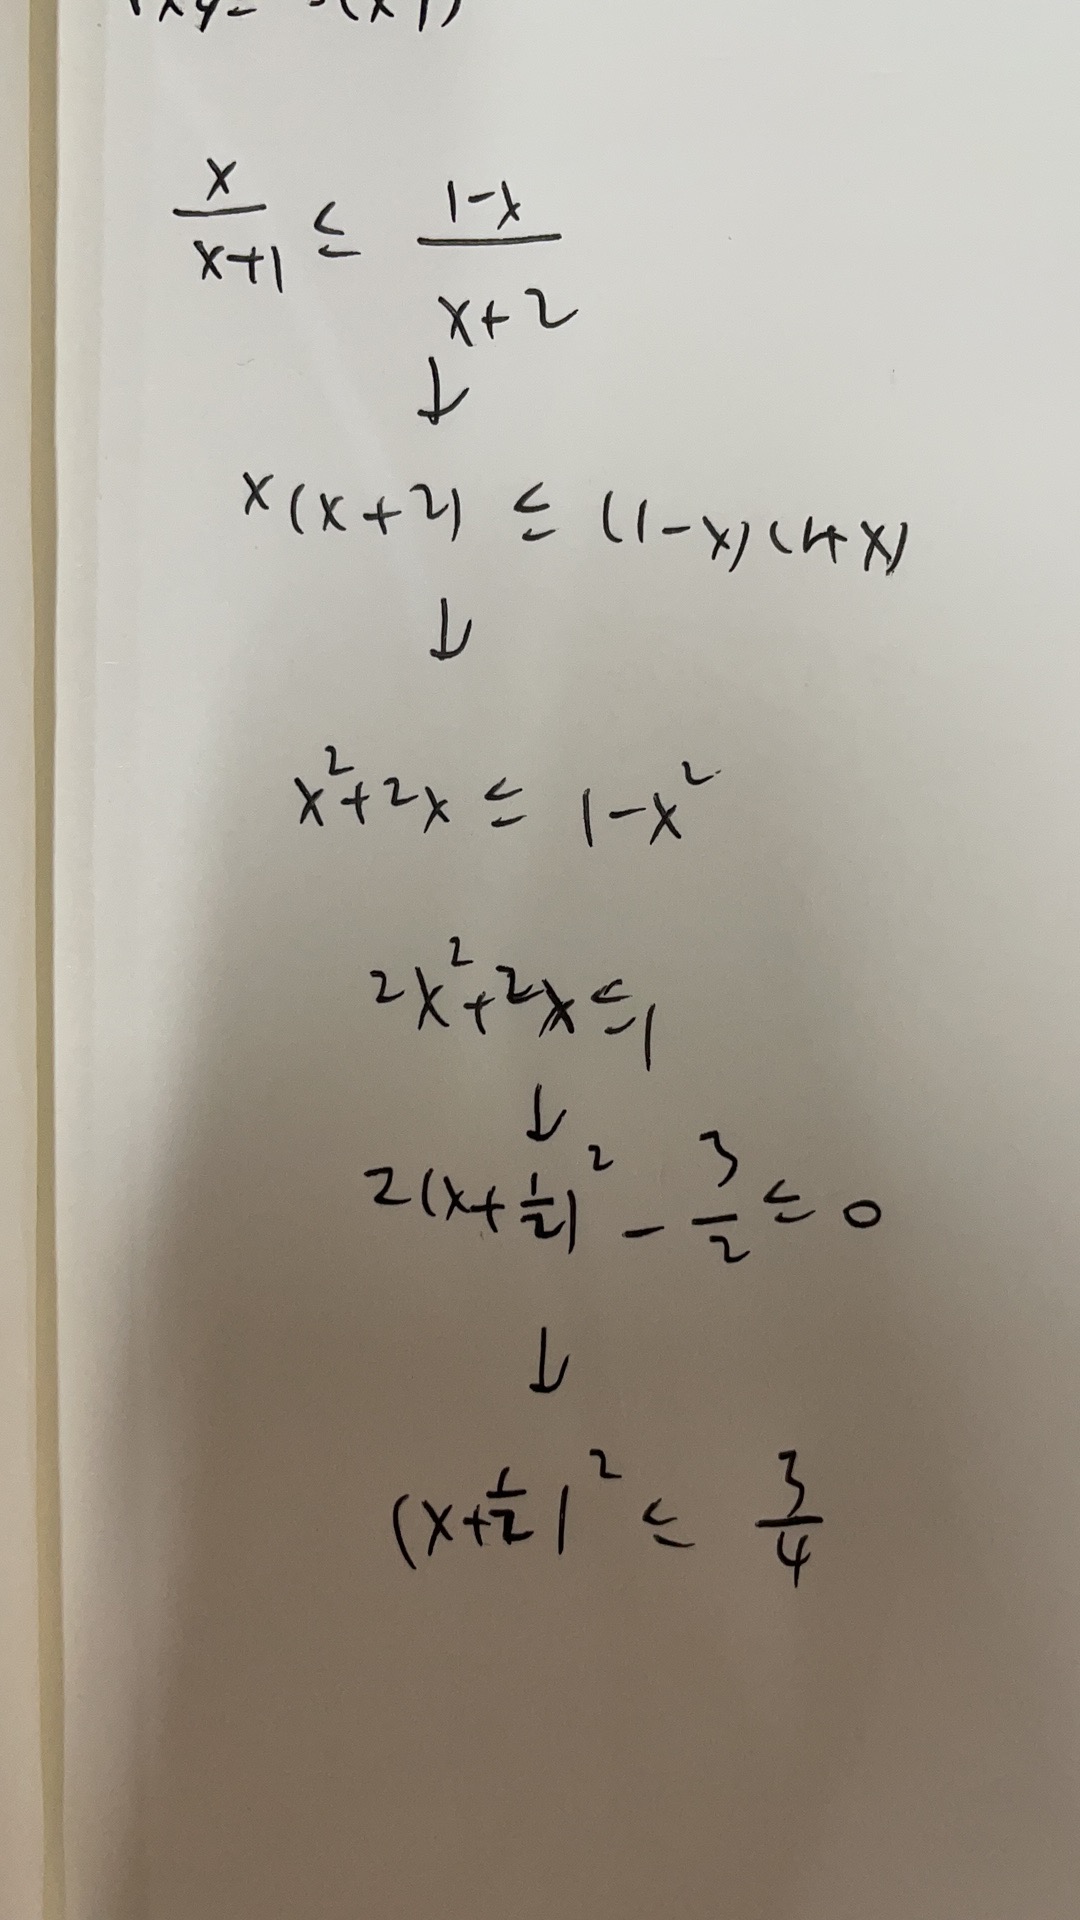 x/(x+1) ≤ (1-x)/(x+2)
↓
x(x+2) ≤ (1-x)(1+x)
↓
x²+2x ≤ 1-x²
2x²+2x ≤ 1
↓
2(x+1/2)² - 3/2 ≤ 0
↓
(x+1/2)² ≤ 3/4